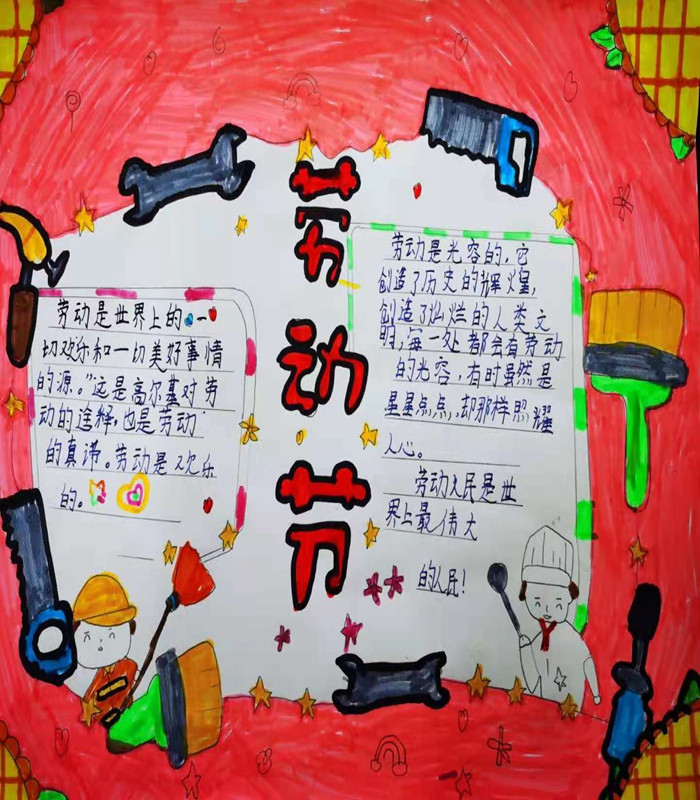 劳动节
劳动是世界上的一
切欢乐和一切美好事情
的源。”这是高尔基对劳
动的诠释,也是劳动
的真谛。劳动是欢乐
的。
劳动是光容的,它
创造了历史的辉煌,
创造了灿烂的人类文
明,每一处都会有劳动
的光容,有时虽然是
星星点点,却那样照耀
人心。
劳动人民是世
界上最伟大
的人民!